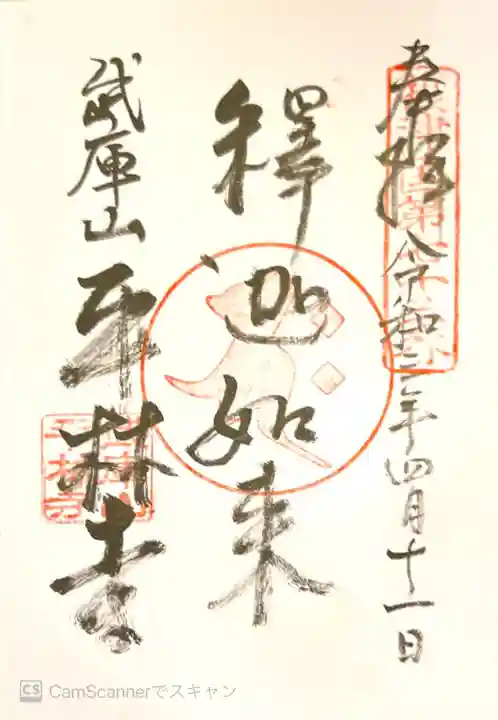 奉拝 令和三年四月十一日
釋迦如来
武庫山 平林寺
CS CamScannerでスキャン